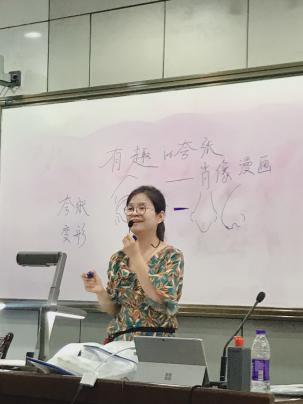 有趣的夸张
——肖像漫画
夸张
变形